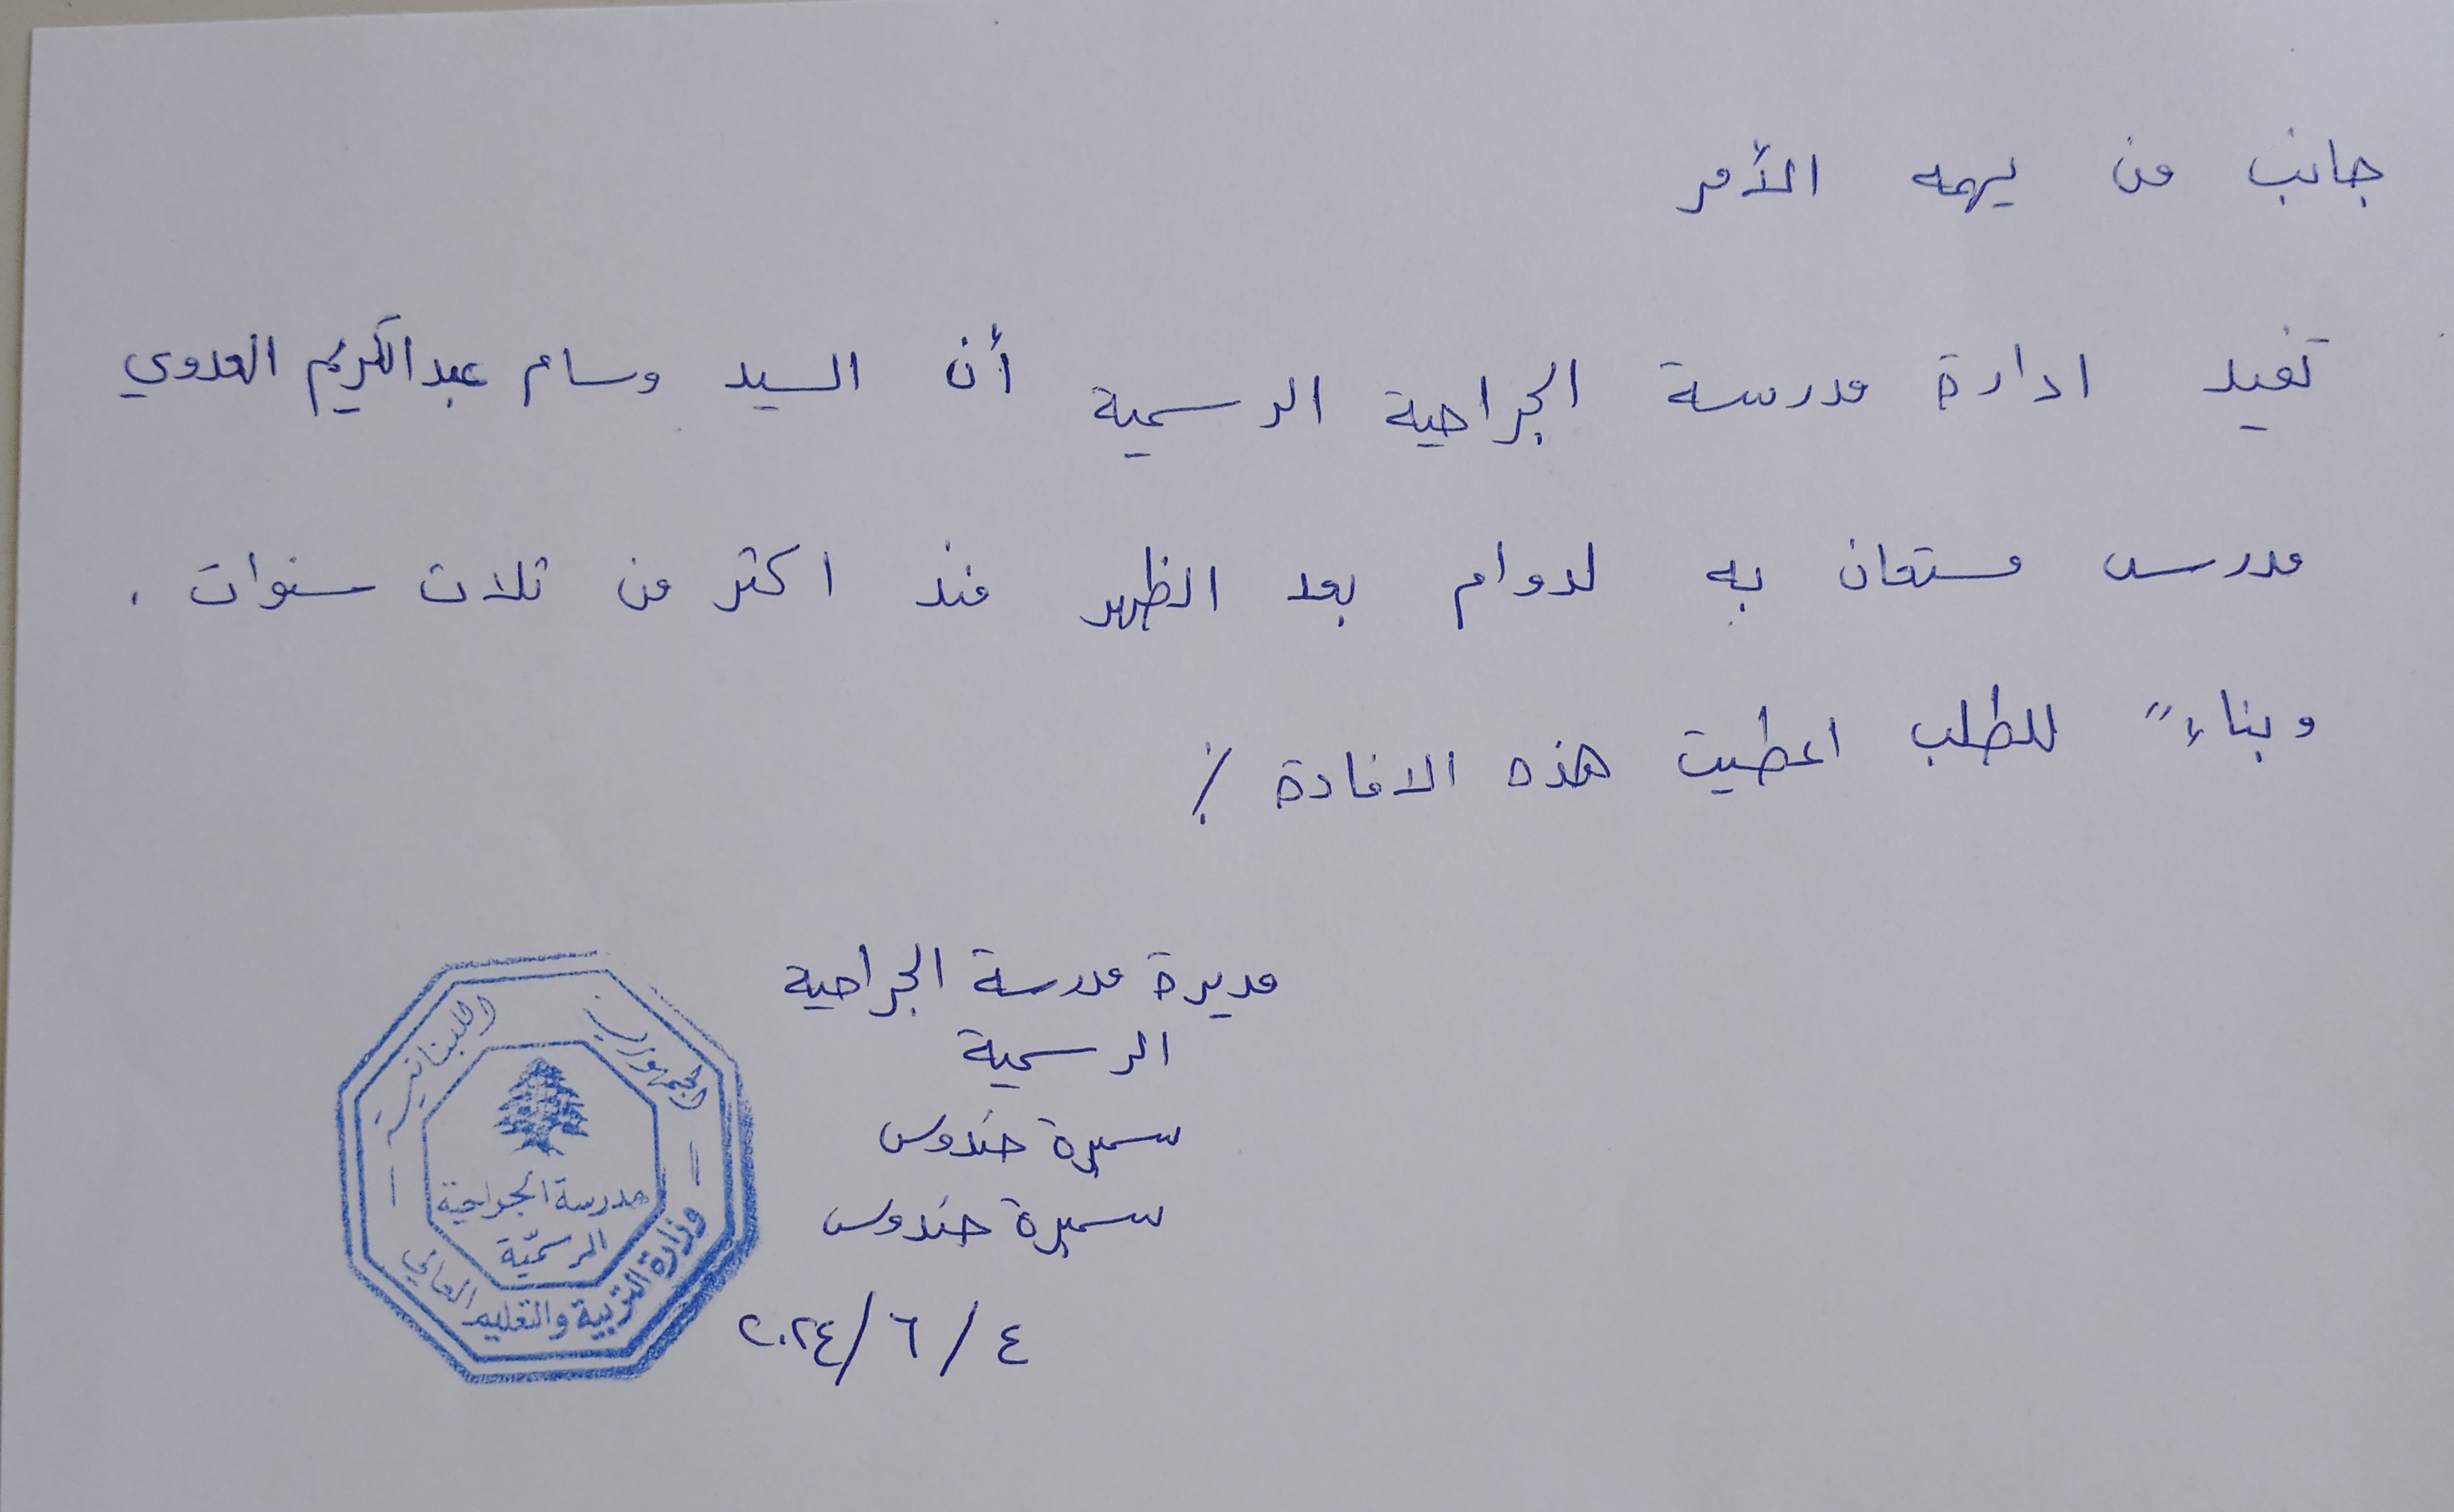 جانب من يهمه الأمر
تفيد ادارة مدرسة الجراحية الرسمية أن السيد وسام عبدالكريم العدوي
مدرس مستعان به لدوام بعد الظهر منذ اكثر من ثلاث سنوات .
وبناءً للطلب اعطيت هذه الافادة ./.
مديرة مدرسة الجراحية
الرسمية
سميرة حندوس
سميرة حندوس
٤ / ٦ / ٢٠٢٤
الجمهورية اللبنانية
مدرسة الجراحية
الرسميّة
وزارة التربية والتعليم العالي